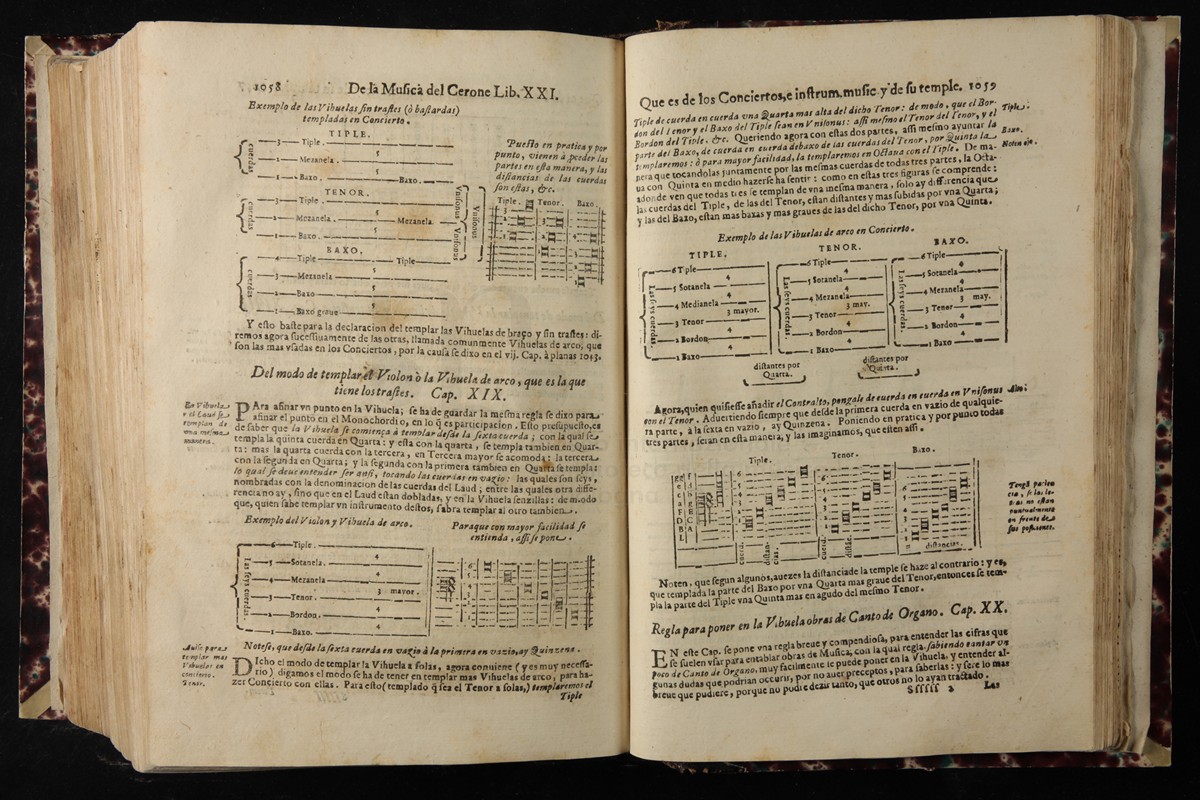 1058 De la Musica del Cerone Lib. XXI.
Exemplo de las Vihuelas sin trastes (ò bastardas)
templadas en Concierto.
TIPLE.
cuerdas
3 Tiple.
5
2 Mezanela.
5
1 Baxo. Baxo.
TENOR.
cuerdas
3 Tiple
5
2 Mezanela. Mezanela.
5
1 Baxo.
Vnisonus
Vnisonus
BAXO.
cuerdas
4 Tiple Tiple
5
3 Mezanela
5
2 Baxo
5
1 Baxo graue
Puesto en pratica y por
punto, vienen à proceder las
partes en esta manera, y las
distancias de las cuerdas
son estas, &c.
Tiple. Tenor. Baxo.
Y esto baste para la declaracion del templar las Vihuelas de braço y sin trastes: di-
remos agora sucessiuamente de las otras, llamada comunmente Vihuelas de arco, que
son las mas vsadas en los Conciertos, por la causa se dixo en el vij. Cap. à planas 1043.
Del modo de templar el Violon ò la Vihuela de arco, que es la que
tiene los trastes. Cap. XIX.
En Vihuela
y el Laud se
templan de
vna mesma
manera.
PAra afinar vn punto en la Vihuela; se ha de guardar la mesma regla se dixo para
afinar el punto en el Monochordio, en lo q̃ es participacion. Esto presupuesto, es
de saber que la Vihuela se comiença à templar desde la sexta cuerda; con la qual se
templa la quinta cuerda en Quarta: y esta con la quarta, se templa tambien en Quar-
ta: mas la quarta cuerda con la tercera, en Tercera mayor se acomoda: la tercera
con la segunda en Quarta; y la segunda con la primera tambien en Quarta se templa:
lo qual se deue entender ser ansi, tocando las cuerdas en vagio: las quales son seys,
nombradas con la denominacion de las cuerdas del Laud; entre las quales otra diffe-
rencia no ay, sino que en el Laud estan dobladas, y en la Vihuela senzillas: de modo
que, quien sabe templar vn instrumento destos, sabra templar al otro tambien.
Exemplo del Violon y Vihuela de arco.
Para que con mayor facilidad se
entienda, assi se pone.
Las seys cuerdas.
6 Tiple.
4
5 Sotanela.
4
4 Mezanela
3 mayor.
3 Tenor
4
2 Bordon.
4
1 Baxo.
Notese, que desde la sexta cuerda en vagio à la primera en vazio, ay Quinzena.
Auiso para
templar mas
Vihuelas en
concierto.
Tenor.
DIcho el modo de templar la Vihuela à solas, agora conuiene (y es muy necessa-
rio) digamos el modo se ha de tener en templar mas Vihuelas de arco, para ha-
zer Concierto con ellas. Para esto (templado q̃ sea el Tenor a solas,) templaremos el
Tiple
Que es de los Conciertos, e instrum. music. y de su temple. 1059
Tiple de cuerda en cuerda vna Quarta mas alta del dicho Tenor: de modo, que el Bor-
don del Tenor y el Baxo del Tiple sean en Vnisonus: assi mesmo el Tenor del Tenor, y el
Bordon del Tiple. &c. Queriendo agora con estas dos partes, assi mesmo ayuntar la
parte del Baxo, de cuerda en cuerda debaxo de las cuerdas del Tenor, por Quinta la
templaremos: ò para mayor facilidad, la templaremos en Octaua con el Tiple. De ma-
nera que tocandolas juntamente por las mesmas cuerdas de todas tres partes, la Octa-
ua con Quinta en medio hazerse ha sentir: como en estas tres figuras se comprende:
adonde ven que todas tres se templan de vna mesma manera, solo ay differencia que
las cuerdas del Tiple, de las del Tenor, estan distantes y mas subidas por vna Quarta;
y las del Baxo, estan mas baxas y mas graues de las del dicho Tenor, por vna Quinta.
Tiple.
Baxo.
Exemplo de las Vihuelas de arco en Concierto.
TIPLE. TENOR. BAXO.
Las seys cuerdas.
6 Tiple
4
5 Sotanela
4
4 Medianela
3 mayor.
3 Tenor
4
2 Bordon
4
1 Baxo
Las seys cuerdas.
6 Tiple
4
5 Sotanela
4
4 Mezanela
3 may.
3 Tenor
4
2 Bordon
4
1 Baxo
Las seys cuerdas.
6 Tiple
4
5 Sotanela
4
4 Mezanela
3 may.
3 Tenor
4
2 Bordon
4
1 Baxo
distantes por
Quarta.
distantes por
Quinta.
Agora, quien quisiesse añadir el Contralto, pongale de cuerda en cuerda en Vnisonus
con el Tenor. Aduertiendo siempre que desde la primera cuerda en vazio de qualquie-
ra parte, à la sexta en vazio, ay Quinzena. Poniendo en pratica y por punto todas
tres partes, seran en esta manera; y las imaginamos, que esten assi.
Tiple. Tenor. Baxo.
cuerd. distan-
cias.
cuerd. distãc.
distancias.
Tengã pacien
cia, si las le-
tras no estan
puntualmente
en frente de
sus posiciones.
Noten, que segun algunos, auezes la distancia de la temple se haze al contrario: y es,
que templada la parte del Baxo por vna Quarta mas graue del Tenor, entonces se tem-
pla la parte del Tiple vna Quinta mas en agudo del mesmo Tenor.
Regla para poner en la Vihuela obras de Canto de Organo. Cap. XX.
EN este Cap. se pone vna regla breue y compendiosa, para entender las cifras que
se suelen vsar para entablar obras de Musica, con la qual regla, sabiendo cantar vn
poco de Canto de Organo, muy facilmente se puede poner en la Vihuela, y entender al-
gunas dudas que podrian occurir, por no auer preceptos, para saberlas: y sere lo mas
breue que pudiere, porque no pudre dezir tanto, que otros no lo ayan tractado.
Sfffff 2 Las